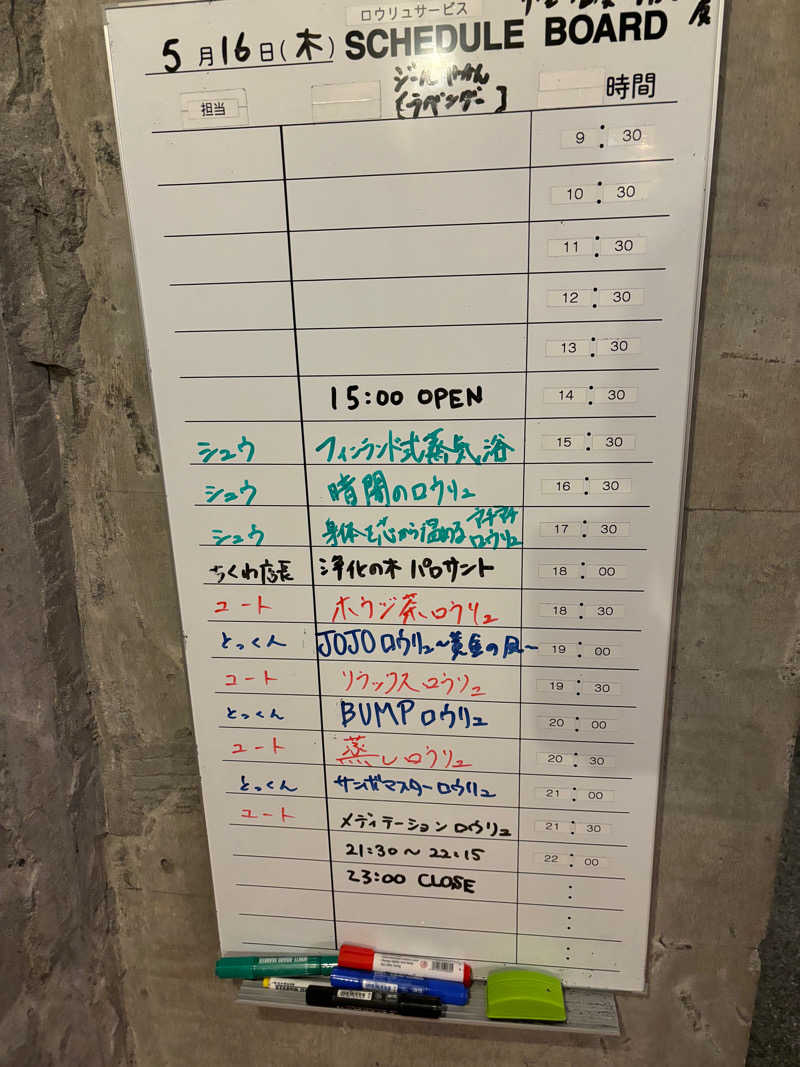 ロウリュサービス
5月16日(木) SCHEDULE BOARD
[ラベンダー]
担当 時間
9:30
10:30
11:30
12:30
13:30
15:00 OPEN 14:30
シュウ フィンランド式蒸気浴 15:30
シュウ 暗闇のロウリュ 16:30
シュウ 身体を芯から温めるアチアチロウリュ 17:30
ちくわ店長 浄化の木 パロサント 18:00
コート ホウジ茶ロウリュ 18:30
とっくん JOJOロウリュ〜黄金の風〜 19:00
コート リラックスロウリュ 19:30
とっくん BUMPロウリュ 20:00
コート 蒸しロウリュ 20:30
とっくん サンボマスターロウリュ 21:00
コート メディテーションロウリュ 21:30
21:30〜22:15 22:00
23:00 CLOSE :
:
: